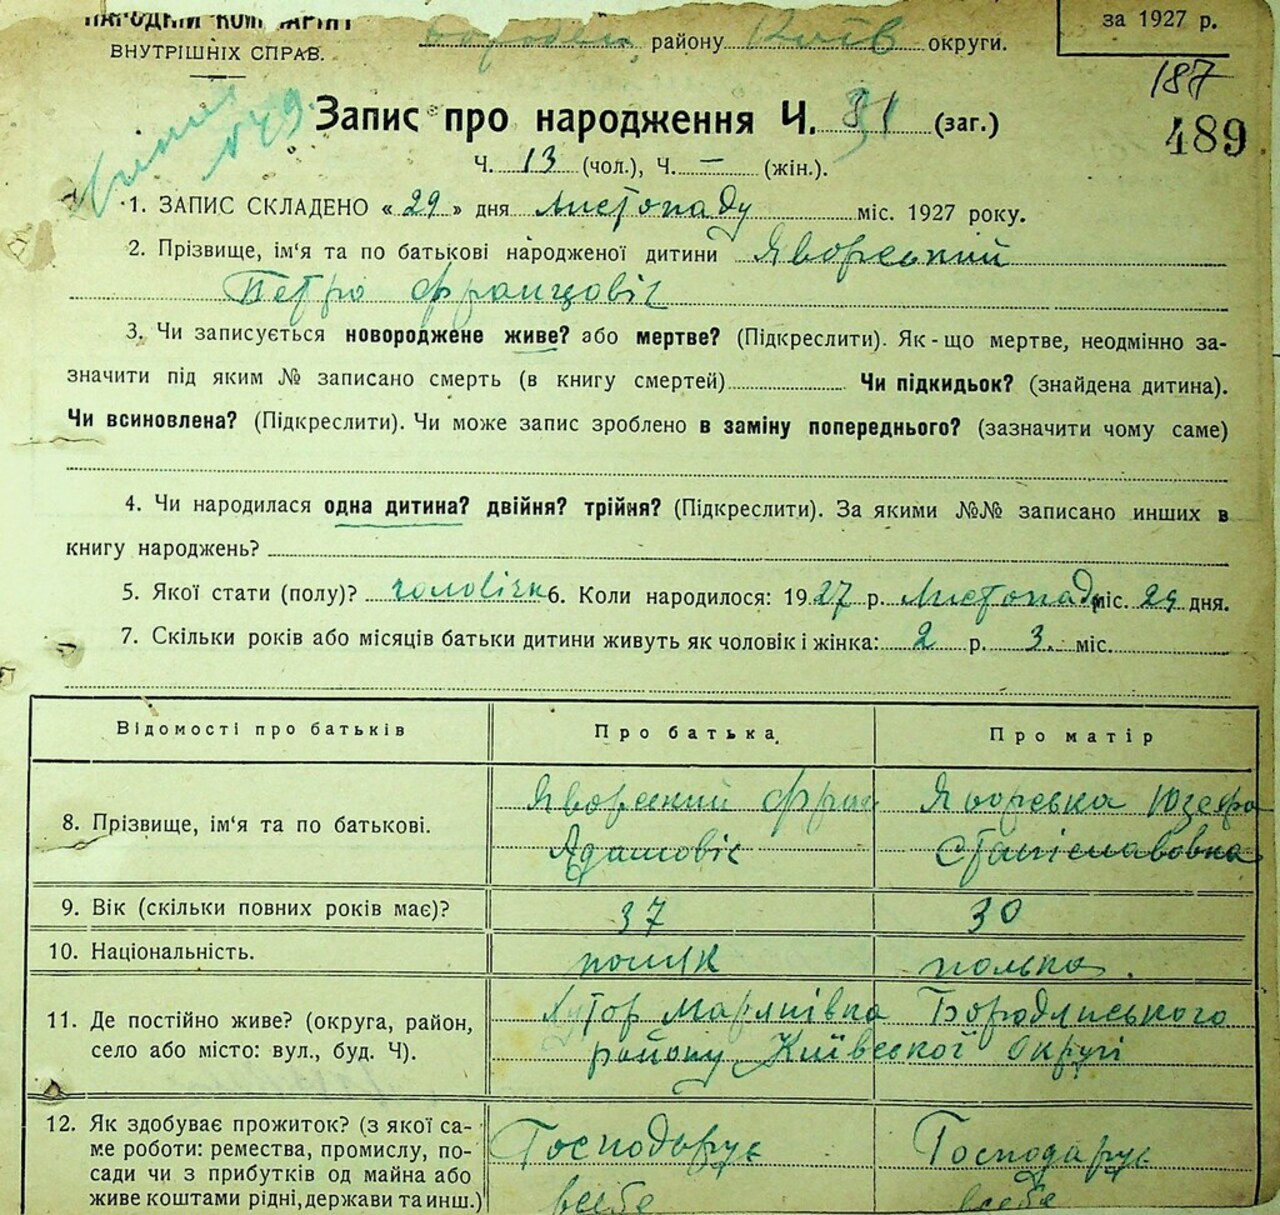 НАРОДНІЙ КОМІСАРІЯТ
ВНУТРІШНІХ СПРАВ.
району Київ округи.
за 1927 р.
187
489
Запис про народження Ч. 31 (заг.)
Ч. 13 (чол.), Ч. — (жін.).
1. ЗАПИС СКЛАДЕНО « 29 » дня Листопаду міс. 1927 року.
2. Прізвище, ім'я та по батькові народженої дитини Яворський
Петро Францовіч
3. Чи записується новороджене живе? або мертве? (Підкреслити). Як-що мертве, неодмінно за-
значити під яким № записано смерть (в книгу смертей) Чи підкидьок? (знайдена дитина).
Чи всиновлена? (Підкреслити). Чи може запис зроблено в заміну попереднього? (зазначити чому саме)
4. Чи народилася одна дитина? двійня? трійня? (Підкреслити). За якими №№ записано инших в
книгу народжень?
5. Якої стати (полу)? чоловічк 6. Коли народилося: 1927 р. Листопаду міс. 29 дня.
7. Скільки років або місяців батьки дитини живуть як чоловік і жінка: 2 р. 3. міс.
Відомості про батьків Про батька. Про матір
8. Прізвище, ім'я та по батькові. Яворський Фран Яворська Юзефа
Адамовіч Станіславовна
9. Вік (скільки повних років має)? 37 30
10. Національність. поляк полька.
11. Де постійно живе? (округа, район, село або місто: вул., буд. Ч). Хутор Мар'янівка Бородянського
району Київської округі
12. Як здобуває прожиток? (з якої са-
ме роботи: ремества, промислу, по-
сади чи з прибутків од майна або
живе коштами рідні, держави та инш.) Господарує Господарує
всебе всебе